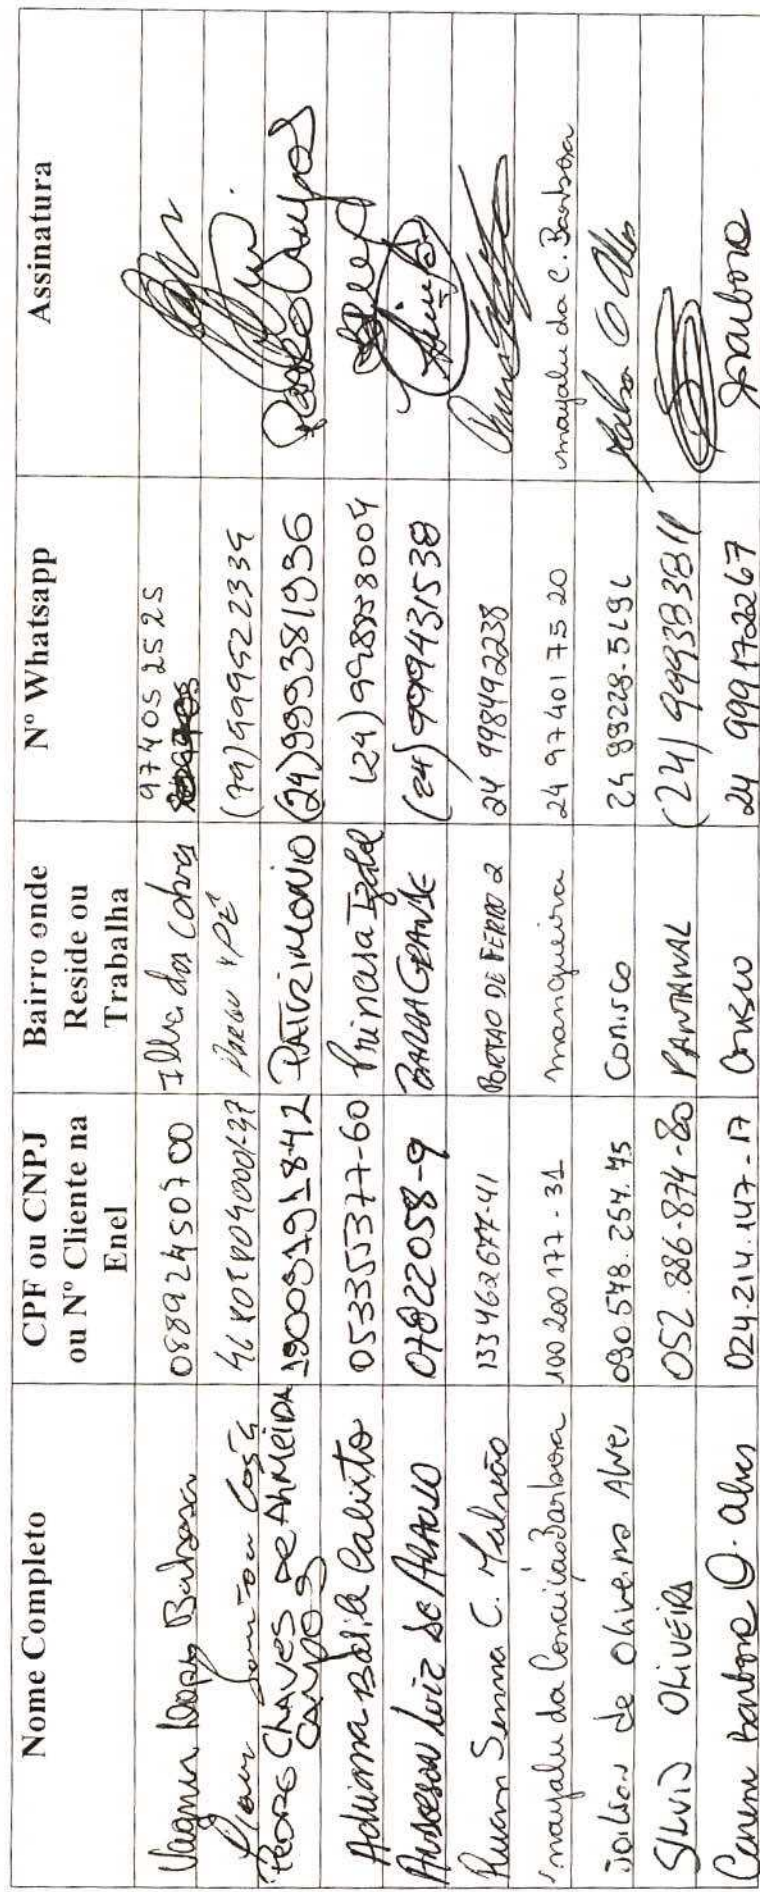 Nome Completo
CPF ou CNPJ
ou Nº Cliente na
Enel
Bairro onde
Reside ou
Trabalha
Nº Whatsapp
Assinatura
Vagner Lopes Barbosa 08892450700 Ilha das Cobras 974052525
Costa Parque Ypê
PEDRO CHAVES DE ALMEIDA CAMPOS PATRIMONIO (24)999381936
Adriana Basilio Calixto 053355377-60 Princesa Izabel (24)
Anderson Luiz de Araujo 07822058-9 BARRA GRANDE (24) 999431538
Ruan Senna C. Malvão 133462677-41 PORTÃO DE FERRO 2 24 998492238
mayalu da Conceição Barbosa 100 200 177 - 31 mangueira 24 97401 75 20 mayalu da C. Barbosa
Joilson de Oliveira Alves 090.578.257.75 Corisco
SILVIO OLIVEIRA 052.886-874-80 PANTANAL
Barbosa O. Alves 024.214.147-17 Corisco 24 9991722267 Barbosa